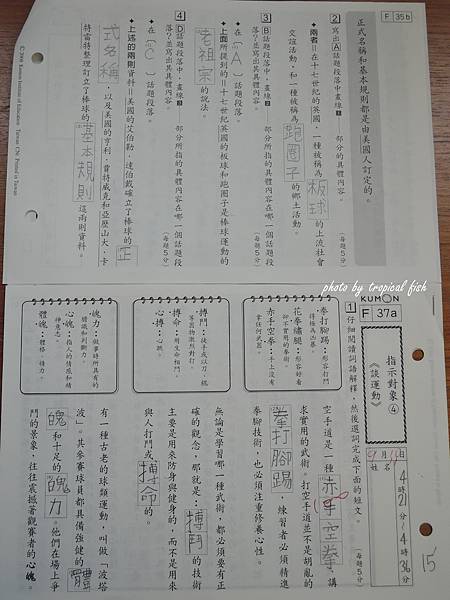 F 35b
正式名稱和基本規則都是由美國人訂定的。
2 寫出A話題段落中，畫線1——部分的具體內容。
(每題5分)
◆兩者＝在十七世紀的英國，一種被稱為板球的上流社會
交誼活動，和一種被稱為跑圈子的鄉土活動。
3 B話題段落中，畫線2——部分所指的具體內容在哪一個話題段
落？並寫出其具體內容。
(每題5分)
◆在〔A〕話題段落。
◆上面所提到的＝十七世紀英國的板球和跑圈子是棒球運動的
老祖宗的說法。
4 D話題段落中，畫線3——部分所指的具體內容在哪一個話題段
落？並寫出其具體內容。
(每題5分)
◆在〔C〕話題段落。
◆上述的兩則資料＝美國的艾伯勒・達伯戴確立了棒球的正
式名稱，以及美國的亨利・曾特威克和亞歷山大・卡
特雷特整理訂立了棒球的基本規則這兩則資料。
photo by tropical fish
KUMON
F 37a
指示對象④
《談運動》
9月16日
姓名
4時21分／4時36分
15
1 仔細閱讀詞語解釋，然後選詞完成下面的短文。
(每題5分)
拳打腳踢：形容打鬥
得極為凶暴。
花拳繡腿：形容好看
卻不實用的拳術。
赤手空拳：手上沒有
拿任何武器。
搏鬥：徒手或以刀、棍
等器物激烈對打。
搏命：用生命相鬥。
心搏：心跳。
魄力：做事時所具有的
膽識和判斷力。
心魄：指人的情感和精
神意志。
體魄：體格、精力。
空手道是一種赤手空拳、講
求實用的武術。打空手道並不是胡亂的
拳打腳踢，練習者必須精進
拳腳技術，也必須注重修養心性。
無論是學習哪一種武術，都必須要有正
確的觀念，那就是：搏鬥的技術
主要是用來防身與健身的，而不是用來
與人打鬥或搏命的。
有一種古老的球類運動，叫做「波塔
波」。其參賽球員都具備強健的體
魄和十足的魄力。他們在場上爭
鬥的景象，往往震撼著觀賽者的心魄。